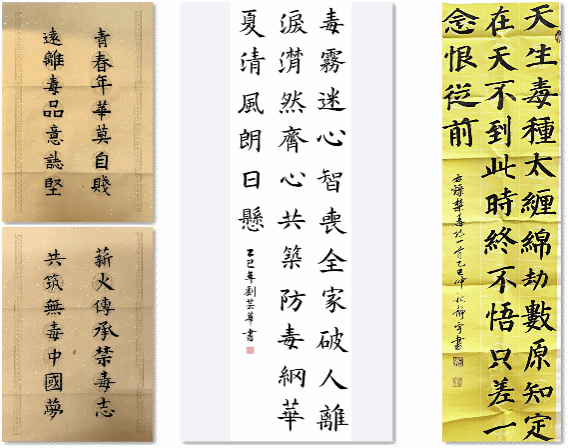 青春年華莫自賤
遠離毒品意誌堅
薪火傳承禁毒志
共筑無毒中國夢
毒霧迷心智喪全家破人離
淚潸然齊心共築防毒網華
夏清風朗日懸
乙巳年劉芸華書
天生毒種太纏綿劫數原知定
在天不到此時終不悟只差一
念恨從前
禁毒詩一首乙巳仲秋靜宇書